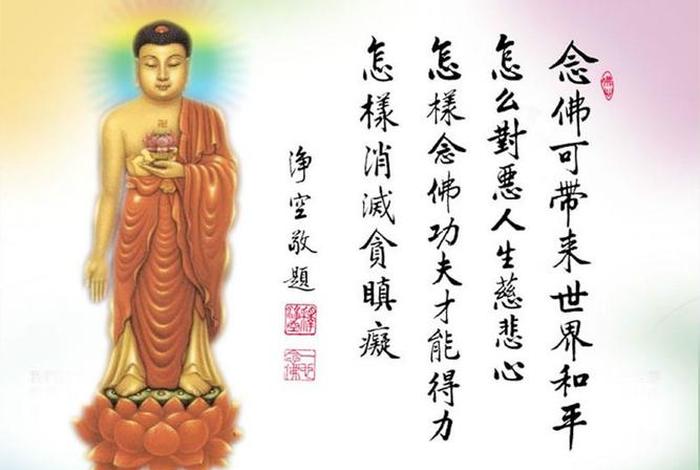 念佛可帶来世界和平
怎么對惡人生慈悲心
怎樣念佛功夫才能得力
怎樣消滅貪瞋癡
淨空敬題